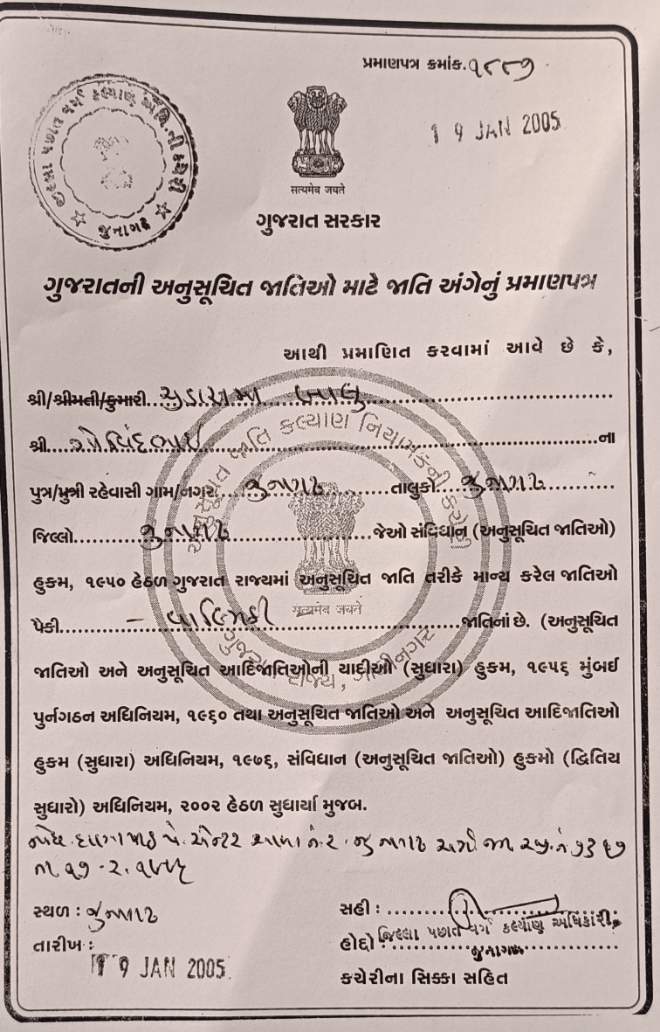 પ્રમાણપત્ર ક્રમાંક.
19 JAN 2005
જીલ્લા પછાત વર્ગ કલ્યાણ અધિ.ની કચેરી
જુનાગઢ
सत्यमेव जयते
ગુજરાત સરકાર
ગુજરાતની અનુસૂચિત જાતિઓ માટે જાતિ અંગેનું પ્રમાણપત્ર
આથી પ્રમાણિત કરવામાં આવે છે કે,
શ્રી/શ્રીમતી/કુમારી..ચુડાસમા બાલુ
શ્રી...ગોવિંદભાઈ...ના
પુત્ર/પુત્રી રહેવાસી ગામ/નગર...જુનાગઢ...તાલુકો..જુનાગઢ...
જિલ્લો...જુનાગઢ...જેઓ સંવિધાન (અનુસૂચિત જાતિઓ)
હુકમ, ૧૯૫૦ હેઠળ ગુજરાત રાજ્યમાં અનુસૂચિત જાતિ તરીકે માન્ય કરેલ જાતિઓ
પૈકી...- વાલ્મિકી...જાતિનાં છે. (અનુસૂચિત
જાતિઓ અને અનુસૂચિત આદિજાતિઓની યાદીઓ (સુધારા) હુકમ, ૧૯૫૬ મુંબઈ
પુર્નગઠન અધિનિયમ, ૧૯૬૦ તથા અનુસૂચિત જાતિઓ અને અનુસૂચિત આદિજાતિઓ
હુકમ (સુધારા) અધિનિયમ, ૧૯૭૬, સંવિધાન (અનુસૂચિત જાતિઓ) હુકમો (દ્વિતિય
સુધારો) અધિનિયમ, ૨૦૦૨ હેઠળ સુધાર્યા મુજબ.
અનુસૂચિત જાતિ કલ્યાણ નિયામકની કચેરી
सत्यमेव जयते
ગુજરાત રાજ્ય, ગાંધીનગર
નં. ૨ જુનાગઢ
સ્થળ : જુનાગઢ
સહી :
તારીખ :
19 JAN 2005
હોદ્દો જિલ્લા પછાત વર્ગ કલ્યાણ અધિકારી,
જુનાગઢ
કચેરીના સિક્કા સહિત